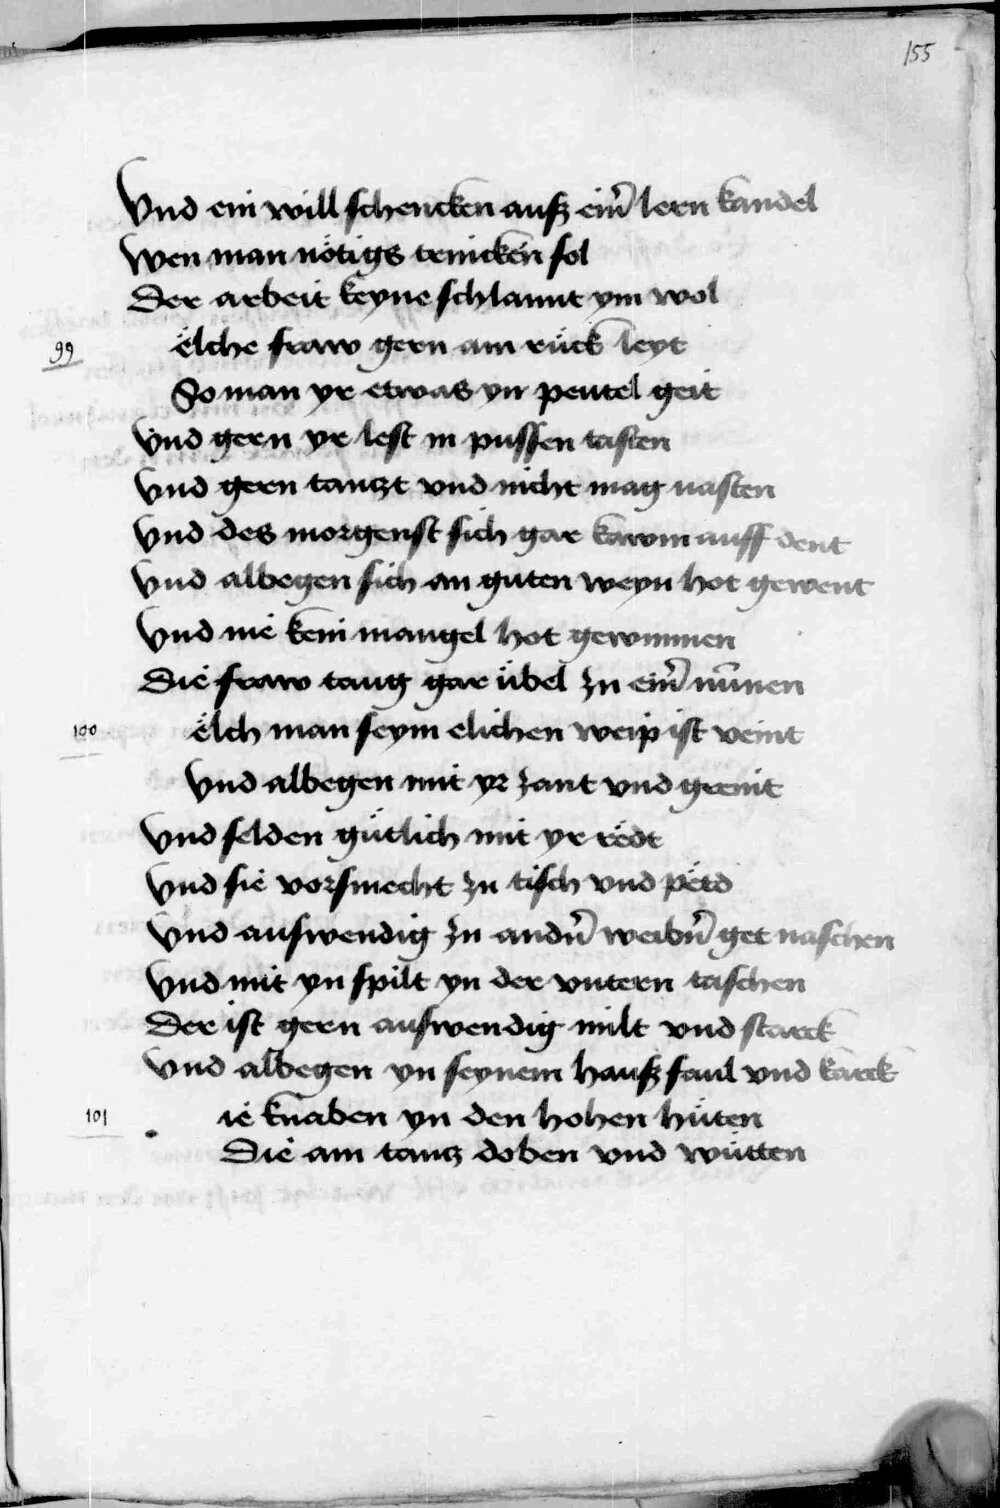 155
Vnd ein will schencken ausz eim̄ lern kandel
Wen man nötigs trincken sol
Der arbeit keyne schlaunt ym wol
99 ëlche fraw gern am rück leyt
So man yr etwas yn peutel geit
Vnd gern yr lest in pussen tasten
Vnd gern tanczt vnd nicht mag vasten
Vnd des morgenst sich gar kawm auff dent
Vnd albegen sich an guten weyn hot gewent
Vnd nië kein mangel hot gewunnen
Dië fraw taug gar übel zu eim̄ nūnen
100 ëlch man seym elichen weip ist veint
Vnd albegen mit yr zant vnd greint
Vnd selden gütlich mit yr rëdt
Vnd sië vorsmecht zu tisch vnd pëtd
Vnd auswendig zu andn̄ weibn̄ get naschen
Vnd mit yn spilt yn der vntern taschen
Der ist gern auswendig milt vnd starck
Vnd albegen yn seynem hausz faul vnd karck
101 ië knaben yn den hohen hüten
Dië am tancz doben vnd wütten